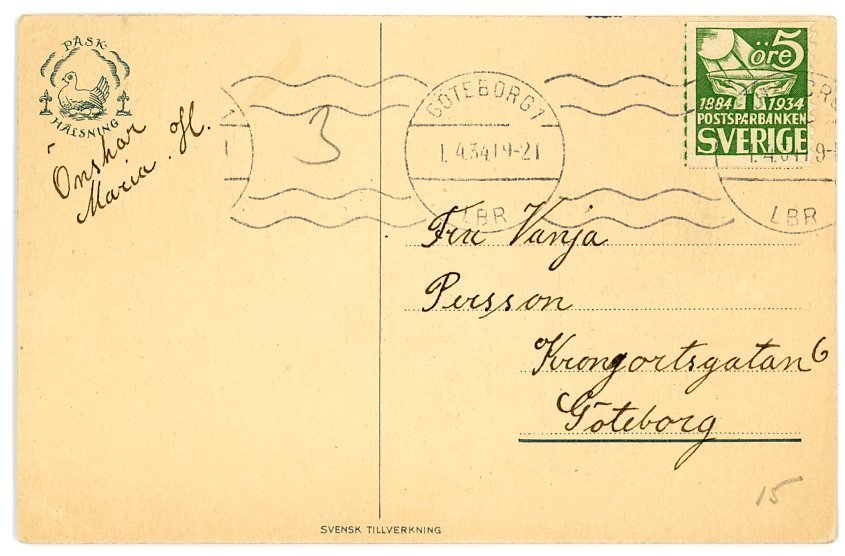 PÅSK-
HÄLSNING
Önskar
Maria. H.
3
GÖTEBORG 1
1. 4.34.19-21
LBR
LBR
öre 5
1884 1934
POSTSPARBANKEN
SVERIGE
Fru Vanja
Persson
Krongortsgatan 6
Göteborg
15
SVENSK TILLVERKNING